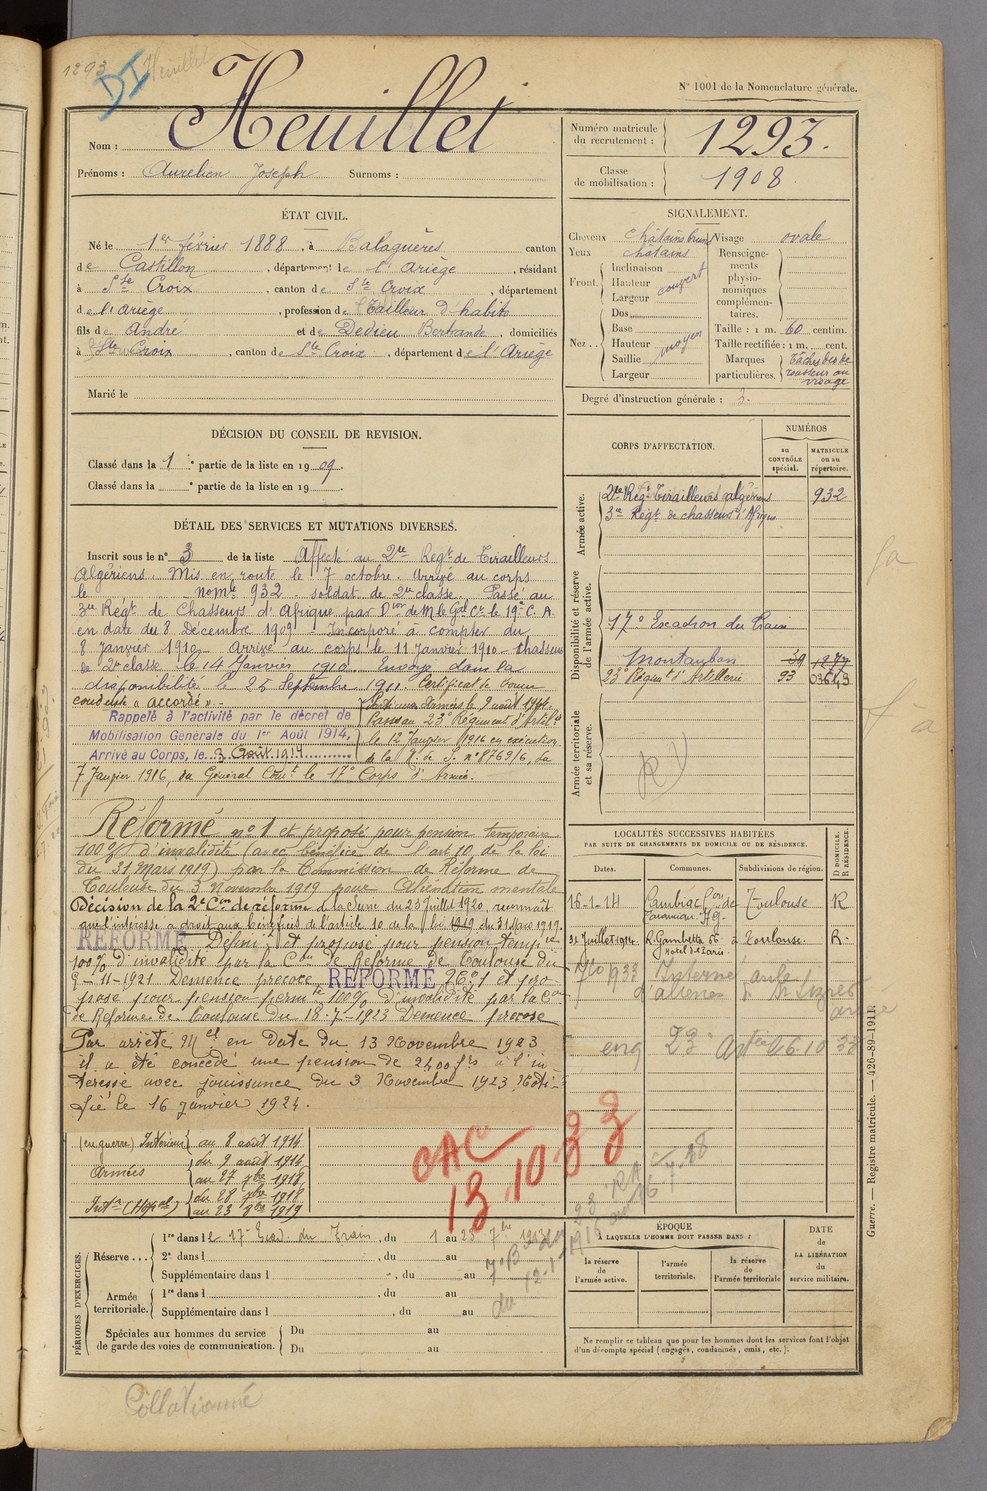 1293
DI
Heuillet
N° 1001 de la Nomenclature générale.
Nom : Heuillet
Prénoms : Aurelien Joseph Surnoms :
Numéro matricule du recrutement : 1293.
Classe de mobilisation : 1908
ÉTAT CIVIL.
Né le 1er février 1888, à Balaguères canton
de Castillon, département de l'Ariège, résidant
à Ste Croix, canton de Ste Croix, département
de l'Ariège, profession de Tailleur d'habits
fils de André et de Dedieu Bertrande, domiciliés
à Ste Croix, canton de Ste Croix, département de l'Ariège
Marié le
SIGNALEMENT.
Cheveux châtains bruns Visage ovale
Yeux châtains
Front Inclinaison Hauteur Largeur couvert
Nez Dos Base Hauteur Saillie Largeur moyen
Renseignements physionomiques complémentaires.
Taille : 1 m. 60 centim.
Taille rectifiée : 1 m. cent.
Marques particulières. Tâches de rousseur au visage
Degré d'instruction générale : 3.
DÉCISION DU CONSEIL DE REVISION.
Classé dans la 1e partie de la liste en 1909.
Classé dans la e partie de la liste en 19
DÉTAIL DES SERVICES ET MUTATIONS DIVERSES.
Inscrit sous le n° 3 de la liste Affecté au 2me Regt de Tirailleurs
Algériens. Mis en route le 7 octobre. Arrivé au corps
le nomé 932. soldat de 2me classe. Passé au
3me Régt de Chasseurs d'Afrique par Don de M. le Gal Ct le 19e C. A.
en date du 8 Décembre 1909 - Incorporé à compter du
8 Janvier 1910. Arrivé au corps le 11 Janvier 1910 - chasseur
de 2e classe le 14 Janvier 1910. Envoyé dans la
disponibilité le 25 Septembre 1911. Certificat de bonne
conduite "accordé".-
Rappelé à l'activité par le décret de
Mobilisation Générale du 1er Août 1914,
Arrivé au Corps, le 3 Août 1914
Parti aux armées le 9 août 1914.
Passé au 23e Régiment d'Artie
le 12 Janvier 1916 en exécution
de la N. de S. n° 8763/6, du
7 Janvier 1916, du Général Comt le 17e Corps d'Armée.
Réformé n° 1 et proposé pour pension temporaire
100% d'invalidité (avec bénéfice de l'art 10 de la loi
du 31 Mars 1919) par la Commission de Réforme de
Toulouse du 3 novembre 1919 pour Aliénation mentale
Décision de la 2e Con de réforme d la Seine du 23 Juillet 1920, reconnaît
que l'intéressé a droit aux bénéfices de l'article 10 de la loi du 31 Mars 1919.
RÉFORMÉ Définif, et proposé pour pension tempre
100% d'invalidité par la Con de Réforme de Toulouse du
9-11-1921 Demence precoce RÉFORMÉ n° 1 et pro-
posé pour pension permte 100% d'invalidité par la Con
de Réforme de Toulouse du 18-7-1923 Demence precose
Par arrêté Mel en Date du 13 Novembre 1923
il a été concédé une pension de 2400 frs à l'in-
téressé avec jouissance du 3 Novembre 1923. Noti-
fié le 16 janvier 1924.
(en guerre) Intérieur au 8 août 1914
Armées du 9 août 1914
au 27 7bre 1918
Intr (Hopal) du 28 7bre 1918
au 23 8bre 1919
CORPS D'AFFECTATION.
NUMÉROS
au CONTRÔLE spécial. MATRICULE ou au répertoire.
Armée active.
2me Regt Tirailleurs algériens 932
3me Regt de chasseurs d'Afrique
Disponibilité et réserve de l'armée active.
17e Escadron du Train
Montauban 39 1277
23e Régiment d'Artillerie 93 03643
Armée territoriale et sa réserve.
LOCALITÉS SUCCESSIVES HABITÉES
PAR SUITE DE CHANGEMENTS DE DOMICILE OU DE RÉSIDENCE.
Dates. Communes. Subdivisions de région. D DOMICILE. R RÉSIDENCE.
16-1-14 Cambiac Con de Caraman. Hg- Toulouse R
31 Juillet 1914. R. Gambetta 66 à Toulouse. R.
Interné asile
d'aliénés St Lizier
23e Artie
CAC
13 10 33
PÉRIODES D'EXERCICES.
Réserve... 1re dans le 17e Escad. du Train, du 1 au 23 7bre 1913
2e dans l , du au
Supplémentaire dans l , du au
Armée territoriale. 1re dans l , du au
Supplémentaire dans l , du au
Spéciales aux hommes du service de garde des voies de communication. Du au
Du au
ÉPOQUE
À LAQUELLE L'HOMME DOIT PASSER DANS :
la réserve de l'armée active. l'armée territoriale. la réserve de l'armée territoriale
DATE DE LA LIBÉRATION du service militaire.
Ne remplir ce tableau que pour les hommes dont les services font l'objet
d'un décompte spécial (engagés, condamnés, omis, etc.).
Guerre. — Registre matricule. — 426-89-1911.
Collationné